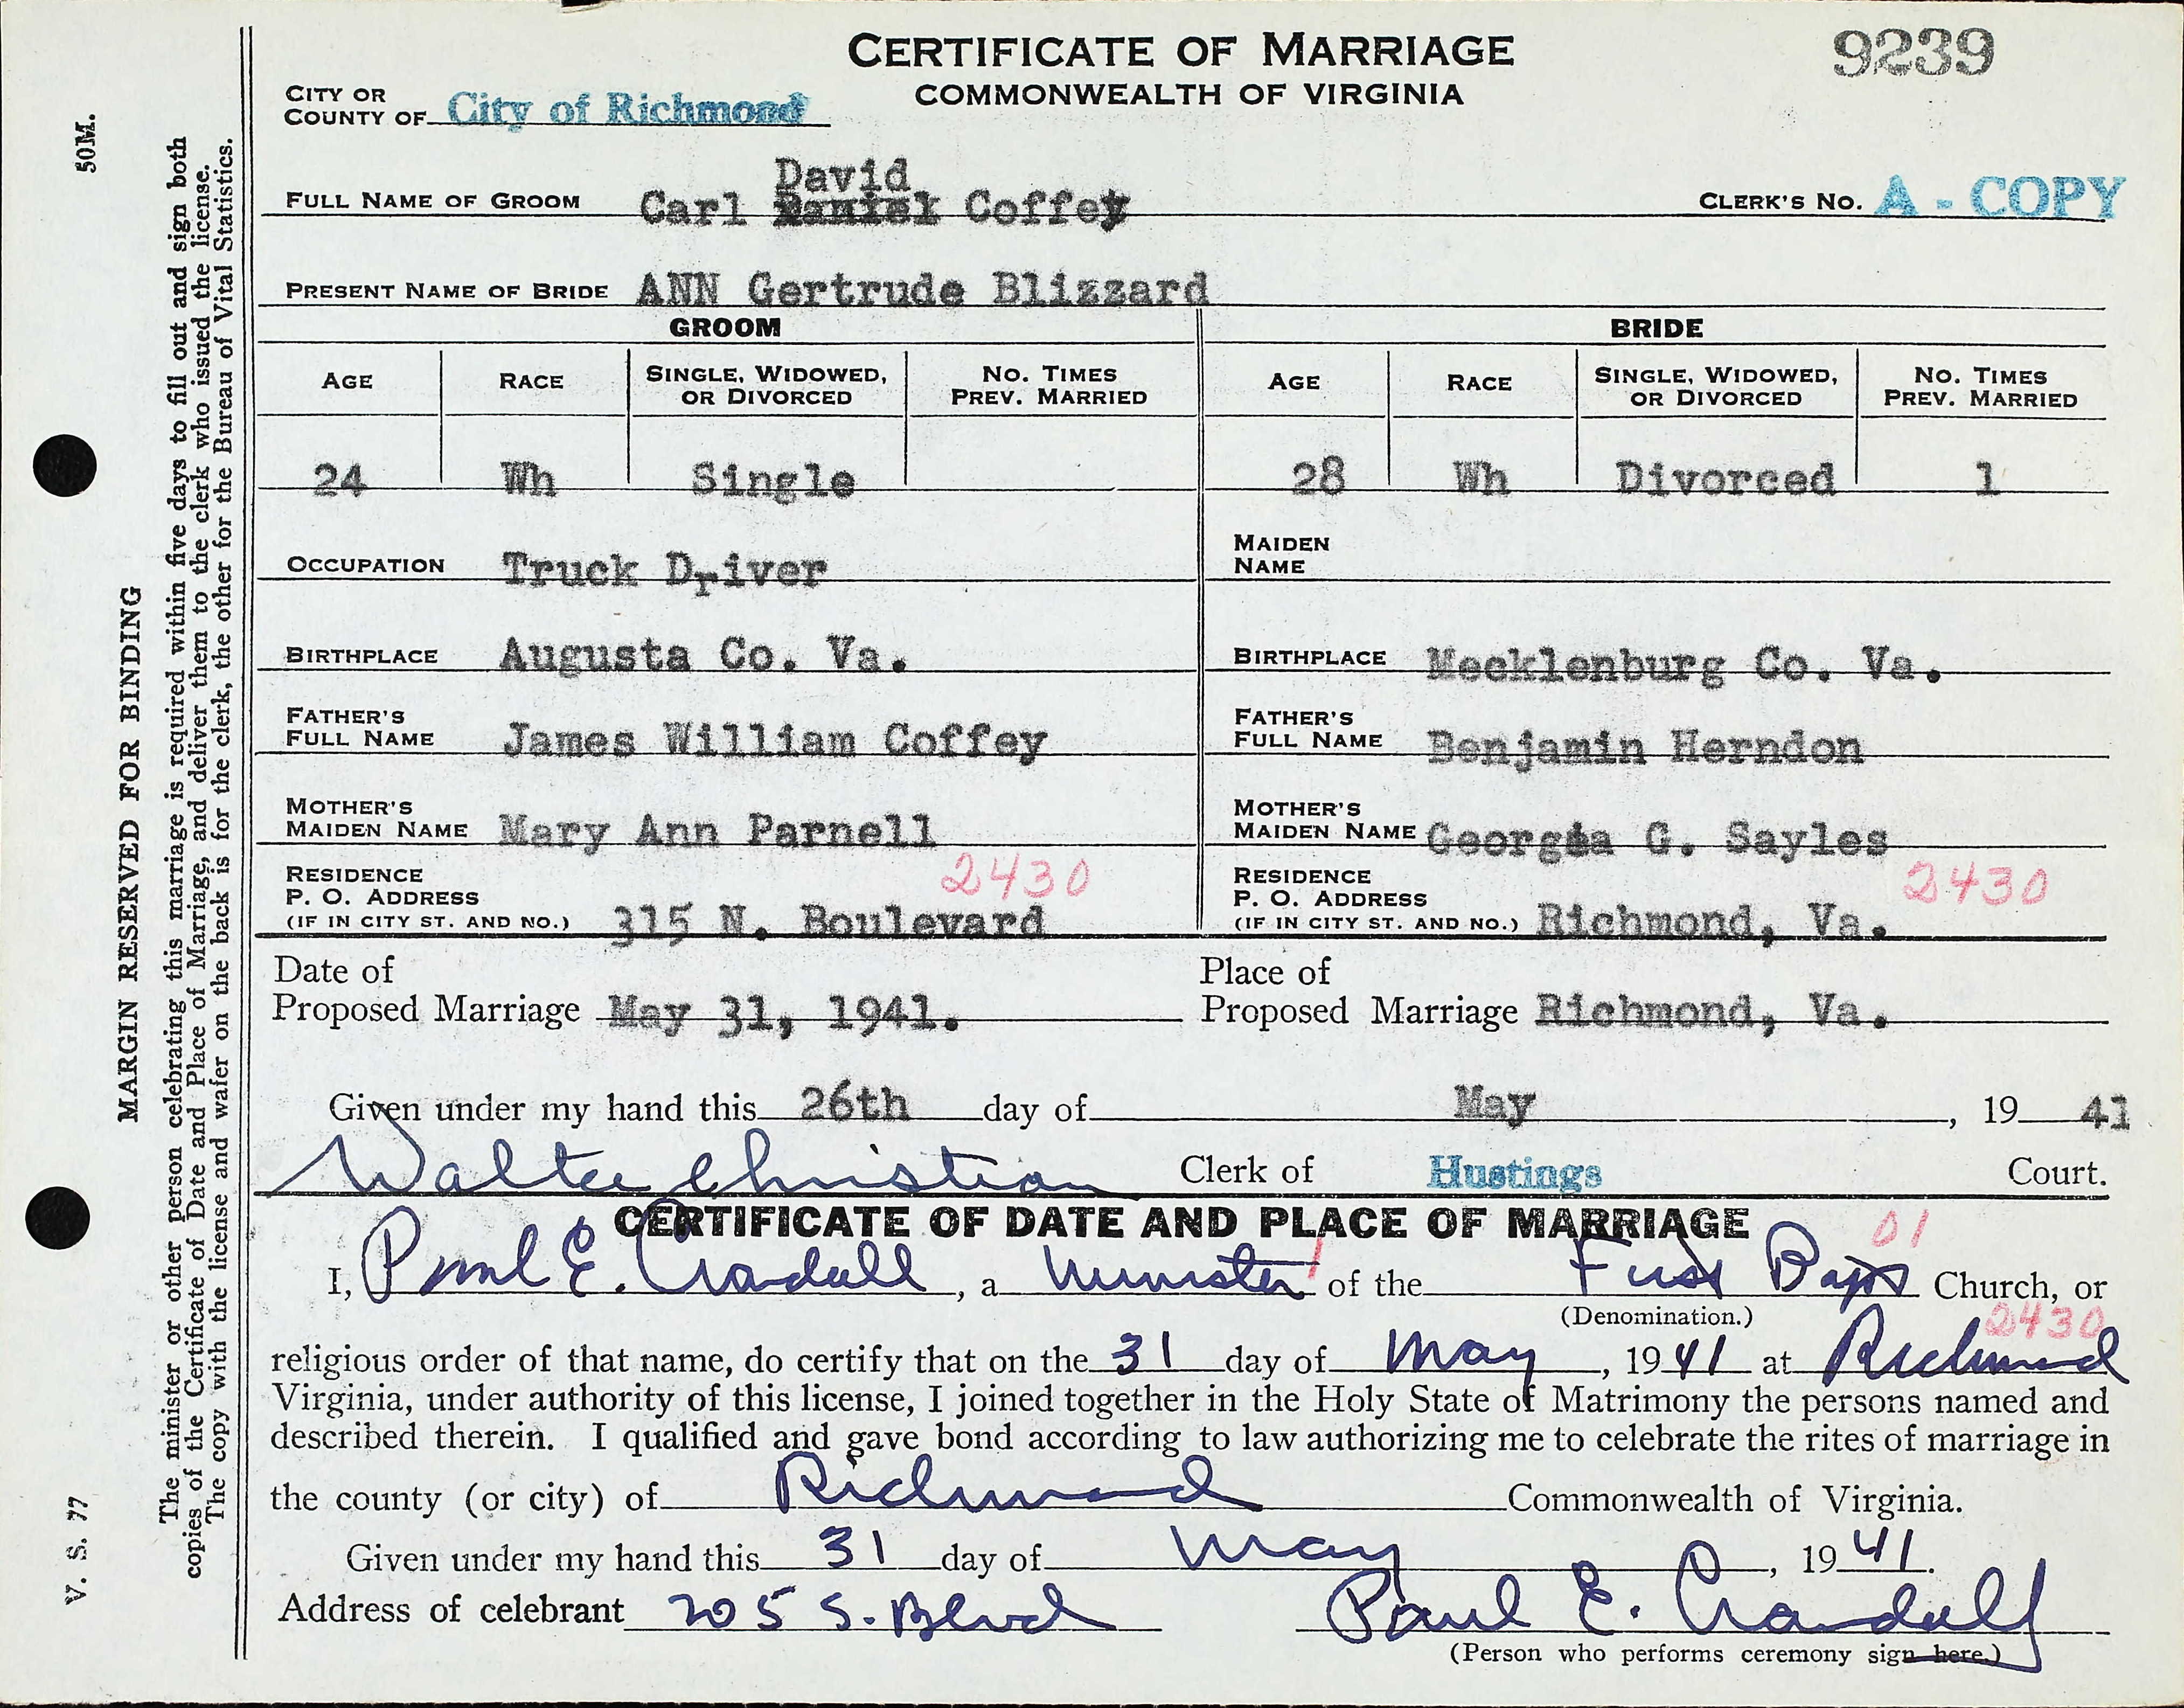 CERTIFICATE OF MARRIAGE
COMMONWEALTH OF VIRGINIA
9239
CITY OR
COUNTY OF City of Richmond
David
FULL NAME OF GROOM Carl Daniel Coffey
CLERK'S NO. A - COPY
PRESENT NAME OF BRIDE ANN Gertrude Blizzard
GROOM BRIDE
AGE RACE SINGLE, WIDOWED, OR DIVORCED NO. TIMES PREV. MARRIED AGE RACE SINGLE, WIDOWED, OR DIVORCED NO. TIMES PREV. MARRIED
24 Wh Single 28 Wh Divorced 1
OCCUPATION Truck Driver
MAIDEN
NAME
BIRTHPLACE Augusta Co. Va.
BIRTHPLACE Mecklenburg Co. Va.
FATHER'S
FULL NAME James William Coffey
FATHER'S
FULL NAME Benjamin Herndon
MOTHER'S
MAIDEN NAME Mary Ann Parnell
MOTHER'S
MAIDEN NAME Georgia G. Sayles
RESIDENCE
P. O. ADDRESS 2430
(IF IN CITY ST. AND NO.) 315 N. Boulevard
RESIDENCE
P. O. ADDRESS 2430
(IF IN CITY ST. AND NO.) Richmond, Va.
Date of
Proposed Marriage May 31, 1941.
Place of
Proposed Marriage Richmond, Va.
Given under my hand this 26th day of May, 1941
Walter Christian Clerk of Hustings Court.
CERTIFICATE OF DATE AND PLACE OF MARRIAGE
01
I, Paul E. Crandall, a Minister 1 of the First Bapt Church, or
(Denomination.)
2430
religious order of that name, do certify that on the 31 day of May, 1941 at Richmond
Virginia, under authority of this license, I joined together in the Holy State of Matrimony the persons named and
described therein. I qualified and gave bond according to law authorizing me to celebrate the rites of marriage in
the county (or city) of Richmond Commonwealth of Virginia.
Given under my hand this 31 day of May, 1941.
Address of celebrant 205 S. Blvd Paul E. Crandall
(Person who performs ceremony sign here.)
50M.
MARGIN RESERVED FOR BINDING
V. S. 77
The minister or other person celebrating this marriage is required within five days to fill out and sign both
copies of the Certificate of Date and Place of Marriage, and deliver them to the clerk who issued the license.
The copy with the license and wafer on the back is for the clerk, the other for the Bureau of Vital Statistics.